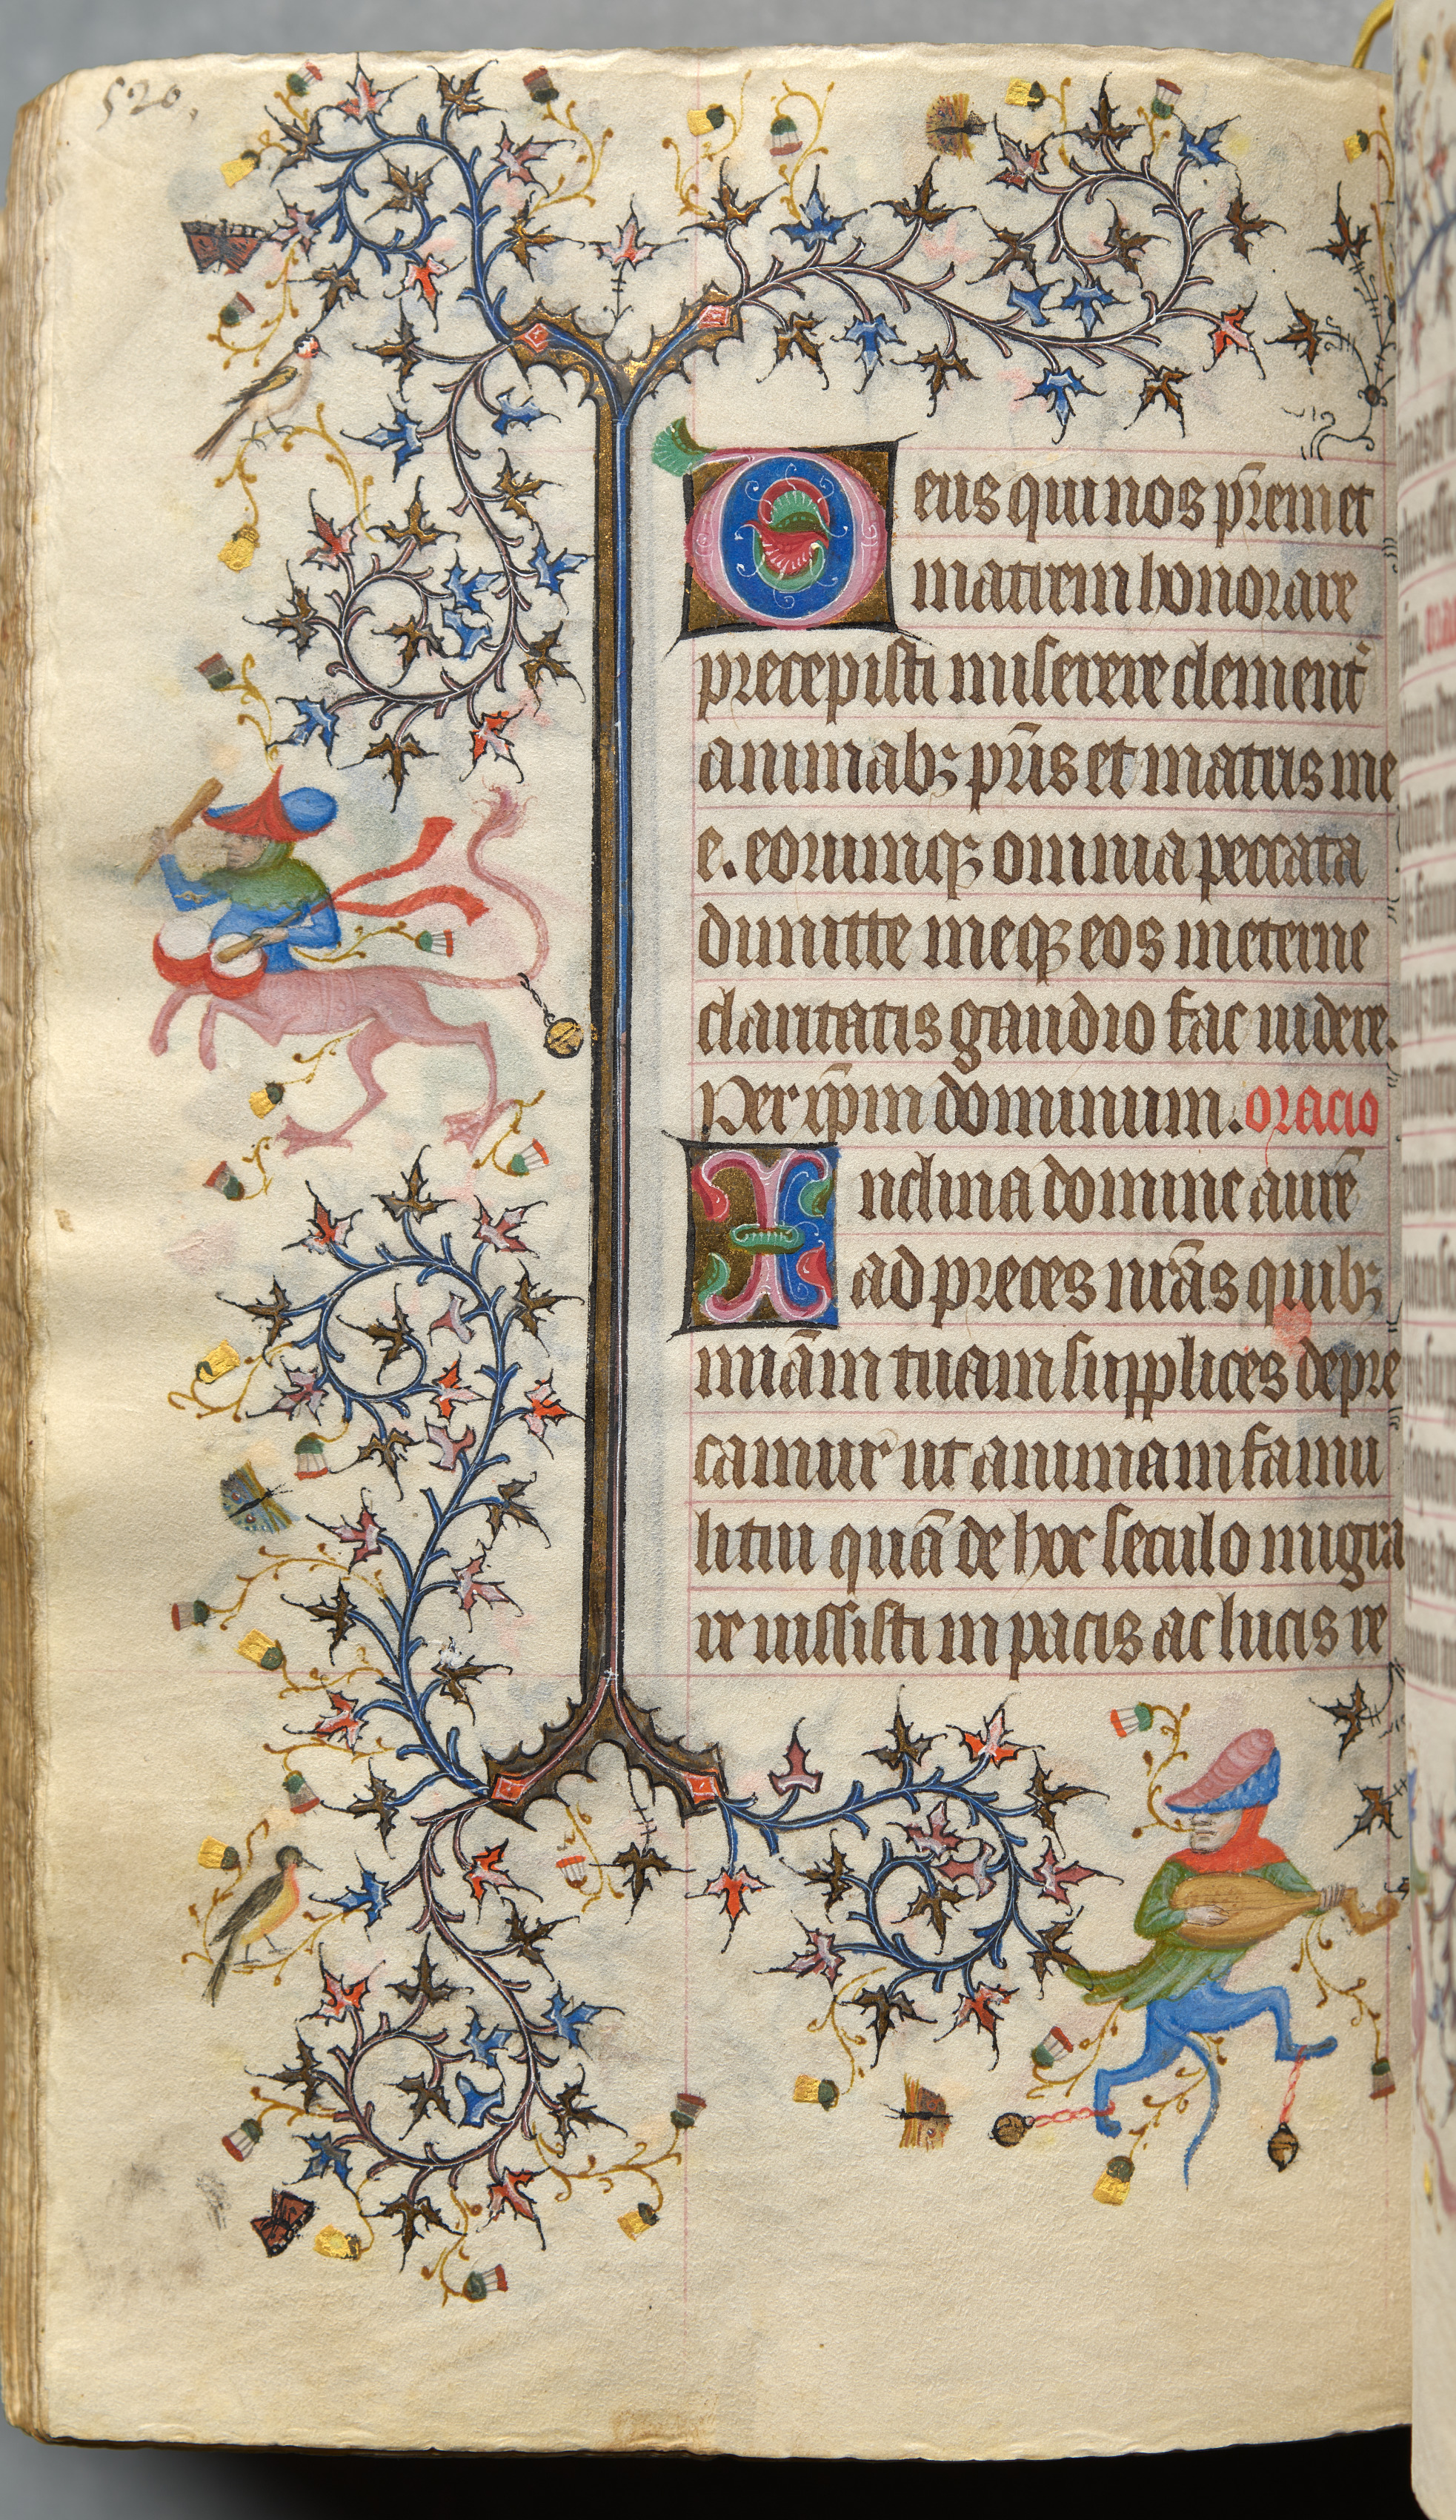 520.
Deus qui nos pr̄em et
matrem honorare
precepisti miserere clement̾
animabꝫ pr̄is et matris me
e. eorumqꝫ omnia peccata
dimitte meqꝫ eos in eterne
claritatis gaudio fac uidere.
Per xp̄m dominum. oracio
Inclina domine aurē
ad preces nr̄as quibꝫ
miām tuam supplices depre
camur ut animam famu
li tui quā de hoc seculo migra
re iussisti in pacis ac lucis re